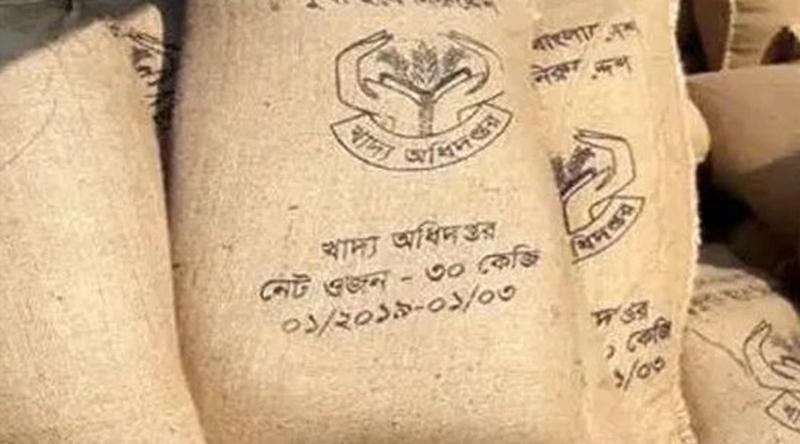 খাদ্য অধিদপ্তর
খাদ্য অধিদপ্তর
নেট ওজন - ৩০ কেজি
০১/২০১৯-০১/০৩
বাংলা
ধিদপ্তর
কেজি
১/০৩